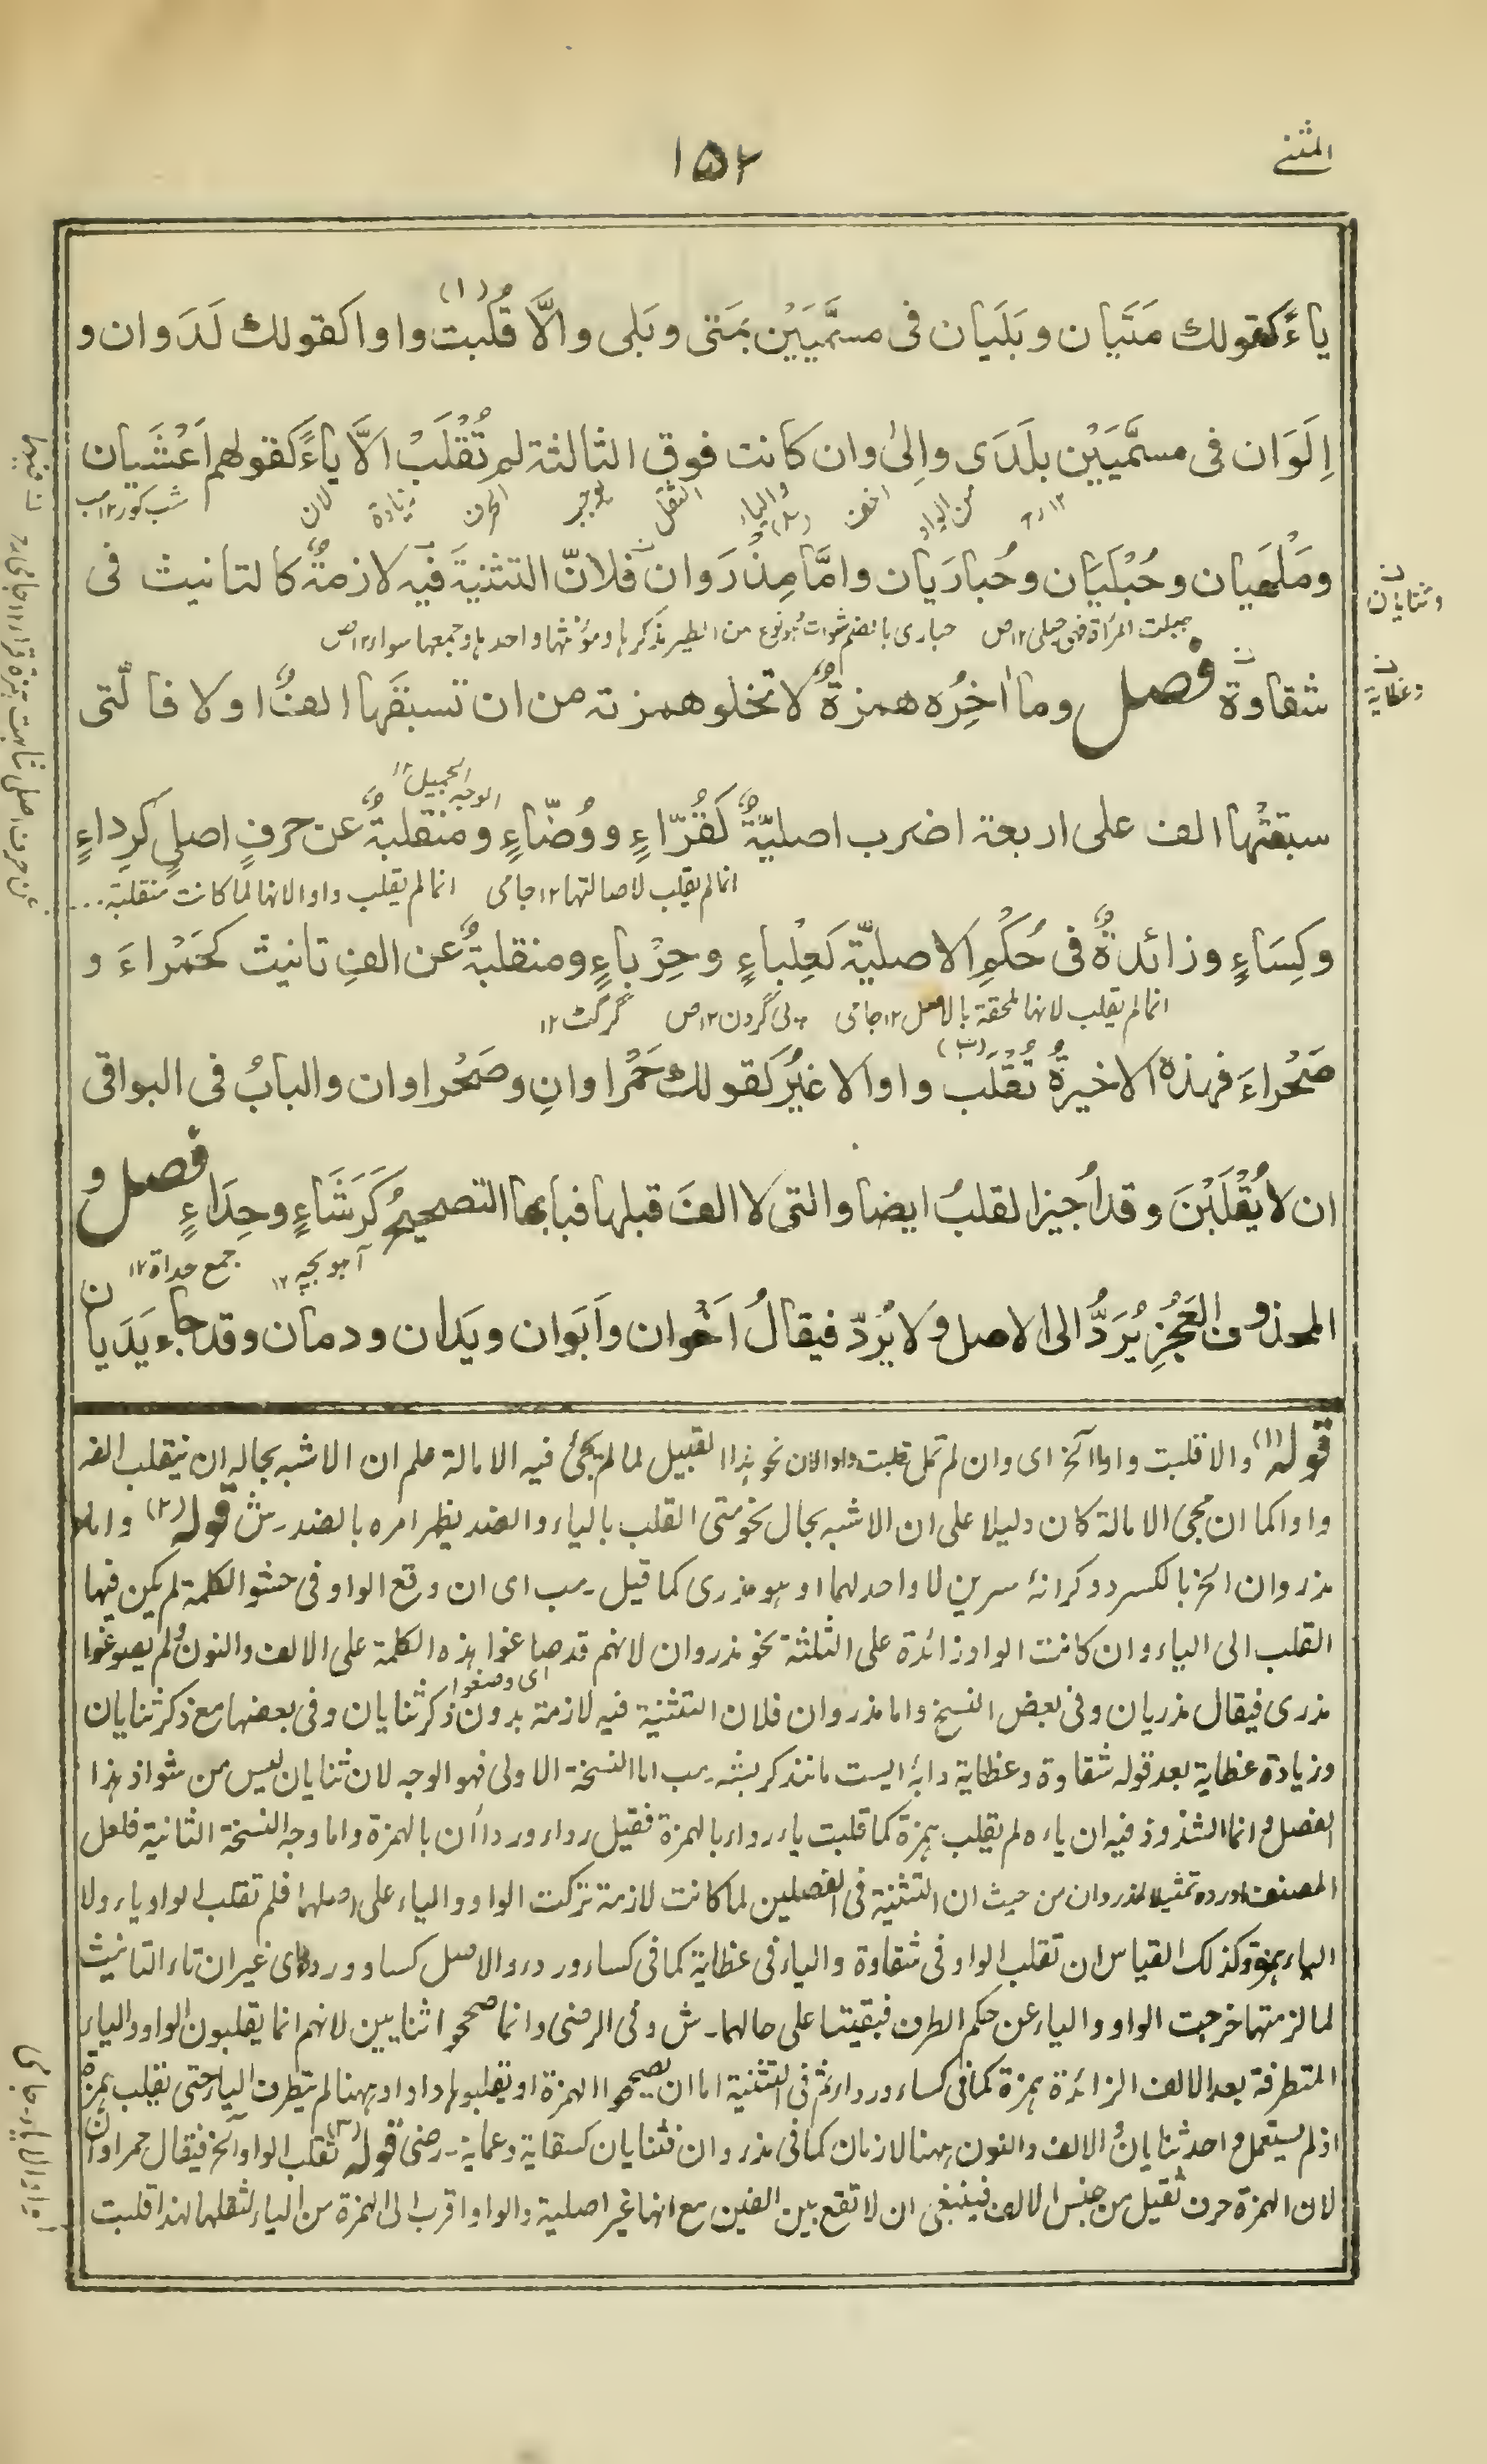 المثنى
١٥٢
ياءً كقولك مَتَيان وبَلَيان فى مسمَّيَيْن بمَتى وبَلى والَّا قُلبت (١) واوا كقولك لَدَوان و
اِلَوَان فى مسمَّيَيْن بلَدَى واِلىٰ وان كانت فوق الثالثة لم تُقْلَبْ الَّا ياءً كقولهم اَعْشَيان
لان زيادة الحرف يوجب الثقل والياء اخف من الواو ١٢
شب كور ١٢ مب
ومَلْهَيان وحُبْلَيَان وحُبارَيان وامَّا مِذْرَوان فلانّ التثنيةَ فيه لازمةٌ كالتانيث فى
وثنايان
حبلت المرأة فهى حبلى ١٢ ص حبارى بالضم شوات وهو نوع من الطير مذكرها ومؤنثها واحدها وجمعها سواء ١٢ ص
شقاوة فصل وما اٰخِرُه همزةٌ لا تخلو همزته من ان تسبقَها الفٌ اولا فالّتى
وعظاية
الوجه الجميل ١٢
سبقتْها الف على اربعة اضرب اصليّةٌ كَقُرّاءٍ ووُضّاءٍ ومنقلبةٌ عن حرفٍ اصلي كرِداءٍ
انما لم يقلب لاصالتها ١٢ جامى انما لم يقلب واوا لانها لما كانت منقلبة ...
وكِسَاءٍ وزائدةٌ فى حُكْمِ الاصليّة كَعِلباءٍ وحِرْباءٍ ومنقلبةٌ عن الفِ تانيث كحَمْراءَ و
انما لم يقلب لانها لمحقة بالاصل ١٢ جامى پى گردن ١٢ ص گرگٹ ١٢
صَحْراءَ فهذه الاخيرةُ تُقْلَب واوا لا غيرُ كقولك حَمْراوانِ وصَحْراوان والبابُ فى البواقى
ان لا يُقْلَبْنَ وقد اُجيز القلبُ ايضا والتى لا الفَ قبلها فبابها التصحيحُ كَرَشَاءٍ وحِدَاءٍ فصل و
آهو بچه ١٢ جمع حداة ١٢
المحذوف العَجُزِ يُرَدُّ الى الاصل ولا يُردّ فيقالُ اَخَوان واَبَوان ويَدان ودمان وقد جاء يَدَيان
قوله (١) والا قلبت واوا آلخ اى وان لم تمل قلبت واوا لان نحو هذا القبيل لما لم يجئ فيه الامالة علم ان الاشبه بحاله ان ينقلب الفه
واوا كما ان مجئ الامالة كان دليلا على ان الاشبه بحال نحو متى القلب بالياء والضد يظهر امره بالضد ـ ش قوله (٢) واما
مذروان الخ بالكسر دو كرانهٔ سرين لا واحد لهما او هو مذرى كما قيل ـ مب اى ان وقع الواو فى حشو الكلمة لم يكن فيها
القلب الى الياء وان كانت الواو زائدة على الثلثة نحو مذروان لانهم قد صاغوا هذه الكلمة على الالف والنون ولم يصوغوا
اى وضعوا
مذرى فيقال مذريان وفى بعض النسخ واما مذروان فلان التثنية فيه لازمة بدون ذكر ثنايان وفى بعضها مع ذكر ثنايان
وزيادة عظاية بعد قوله شقاوة وعظاية دابهٔ ايست مانند كربشه ـ مب اما النسخة الاولى فهو الوجه لان ثنايان ليس من شواذ هذا
الفصل وانما الشذوذ فيه ان ياءه لم يقلب همزة كما قلبت ياء رداء بالهمزة فقيل رداء ورداآن بالهمزة واما وجه النسخة الثانية فلعل
المصنف اورده تمثيلا لمذروان من حيث ان التثنية فى الفصلين لما كانت لازمة تركت الواو والياء على اصلهما فلم تقلب الواو ياء ولا
الياء همزة وكذلك القياس ان تقلب الواو فى شقاوة والياء فى عظاية كما فى كساء ورداء والاصل كساو ورداى غير ان تاء التانيث
لما لزمتها خرجت الواو والياء عن حكم الطرف فبقيتا على حالهما ـ ش وفى الرضى وانما صححوا ثنايين لانهم انما يقلبون الواو والياء
المتطرفة بعد الالف الزائدة همزة كما فى كساء ورداء ثم فى التثنية اما ان يصححوا الهمزة او يقلبوها واوا وههنا لم يتطرف الياء حتى يقلب همزة
اذ لم يستعمل واحد ثنايان والالف والنون ههنا لازمان كما فى مذروان فثنايان كسقاية وعماية ـ رضى قوله (٣) تقلب الواو آلخ فيقال حمراوان
لان الهمزة حرف ثقيل من جنس الالف فينبغى ان لا تقع بين الفين مع انها غير اصلية والواو اقرب الى الهمزة من الياء لثقلها لهذا قلبت